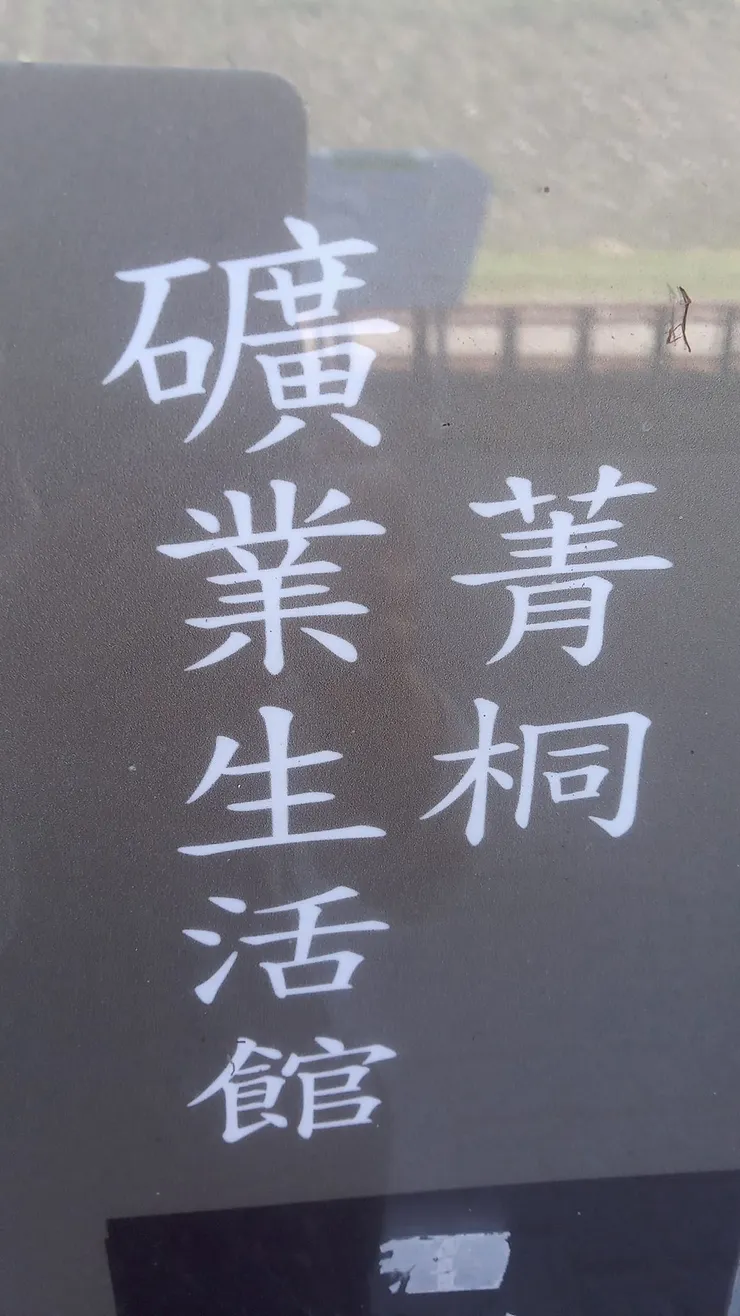 菁桐
礦業生活館